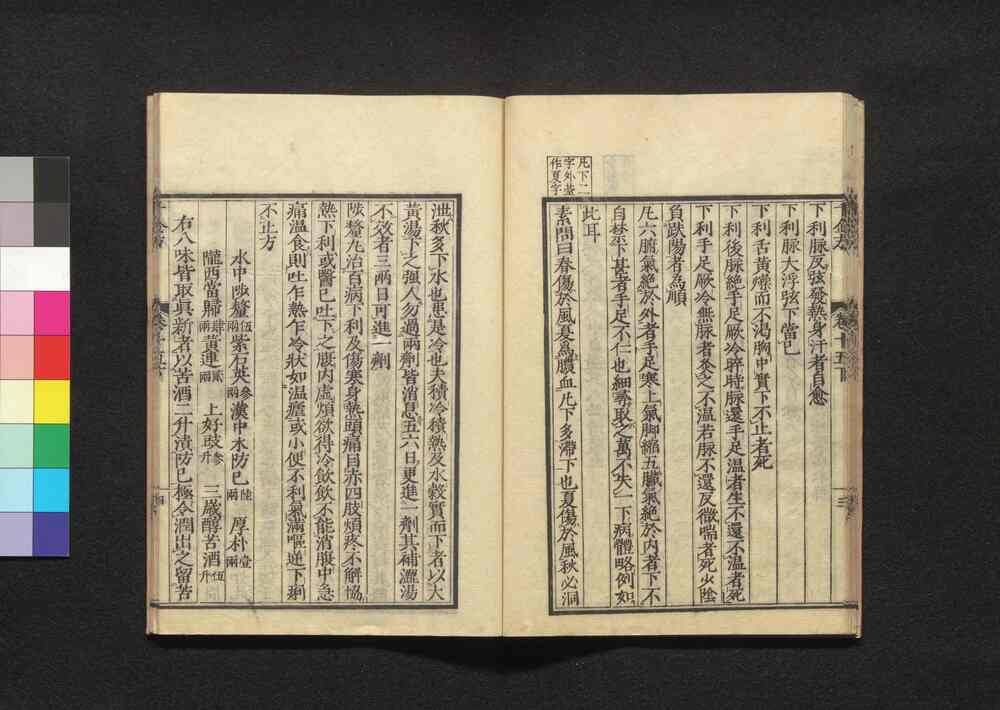 下利脉反弦發熱身汗者自愈
下利脉大浮弦下當已
下利舌黃燥而不渴胸中實下不止者死
下利後脉絶手足厥冷晬時脉還手足溫者生不還不溫者死
下利手足厥冷無脉者灸之不溫若脉不還反微喘者死少陰
負趺陽者為順
凡六腑氣絶於外者手足寒上氣脚縮五臟氣絶於内者下不
自禁下甚者手足不仁也細尋取之萬不失一下病體略例如
此耳
素問曰春傷於風夏為膿血凡下多滯下也夏傷於風秋必洞
凡下二
字外臺
作夏字
泄秋多下水也患是冷也夫積冷積熱及水穀實而下者以大
黃湯下之強人勿過兩劑皆消息五六日更進一劑其補澀湯
不效者三兩日可進一劑
陟釐丸治百病下利及傷寒身熱頭痛目赤四肢煩疼不解協
熱下利或醫已吐下之腹内虛煩欲得冷飲飲不能消腹中急
痛溫食則吐乍熱乍冷狀如溫瘧或小便不利氣滿嘔逆下痢
不止方
水中陟釐伍兩 紫石英參兩 漢中木防已陸兩 厚朴壹兩
隴西當歸肆兩 黃連貳兩 上好豉參升 三歲醇苦酒伍升
右八味皆取真新者以苦酒二升漬防已極令潤出之留苦